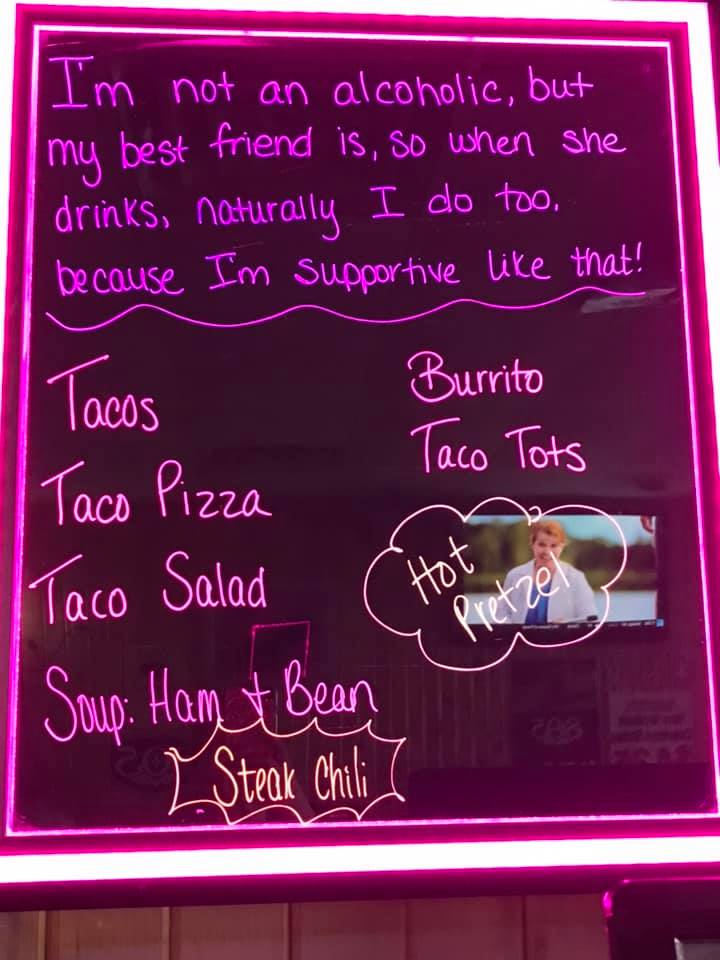 I'm not an alcoholic, but
my best friend is, so when she
drinks, naturally I do too.
because I'm supportive like that!
Tacos
Taco Pizza
Taco Salad
Soup: Ham + Bean
Steak Chili
Burrito
Taco Tots
Hot
Pretzel